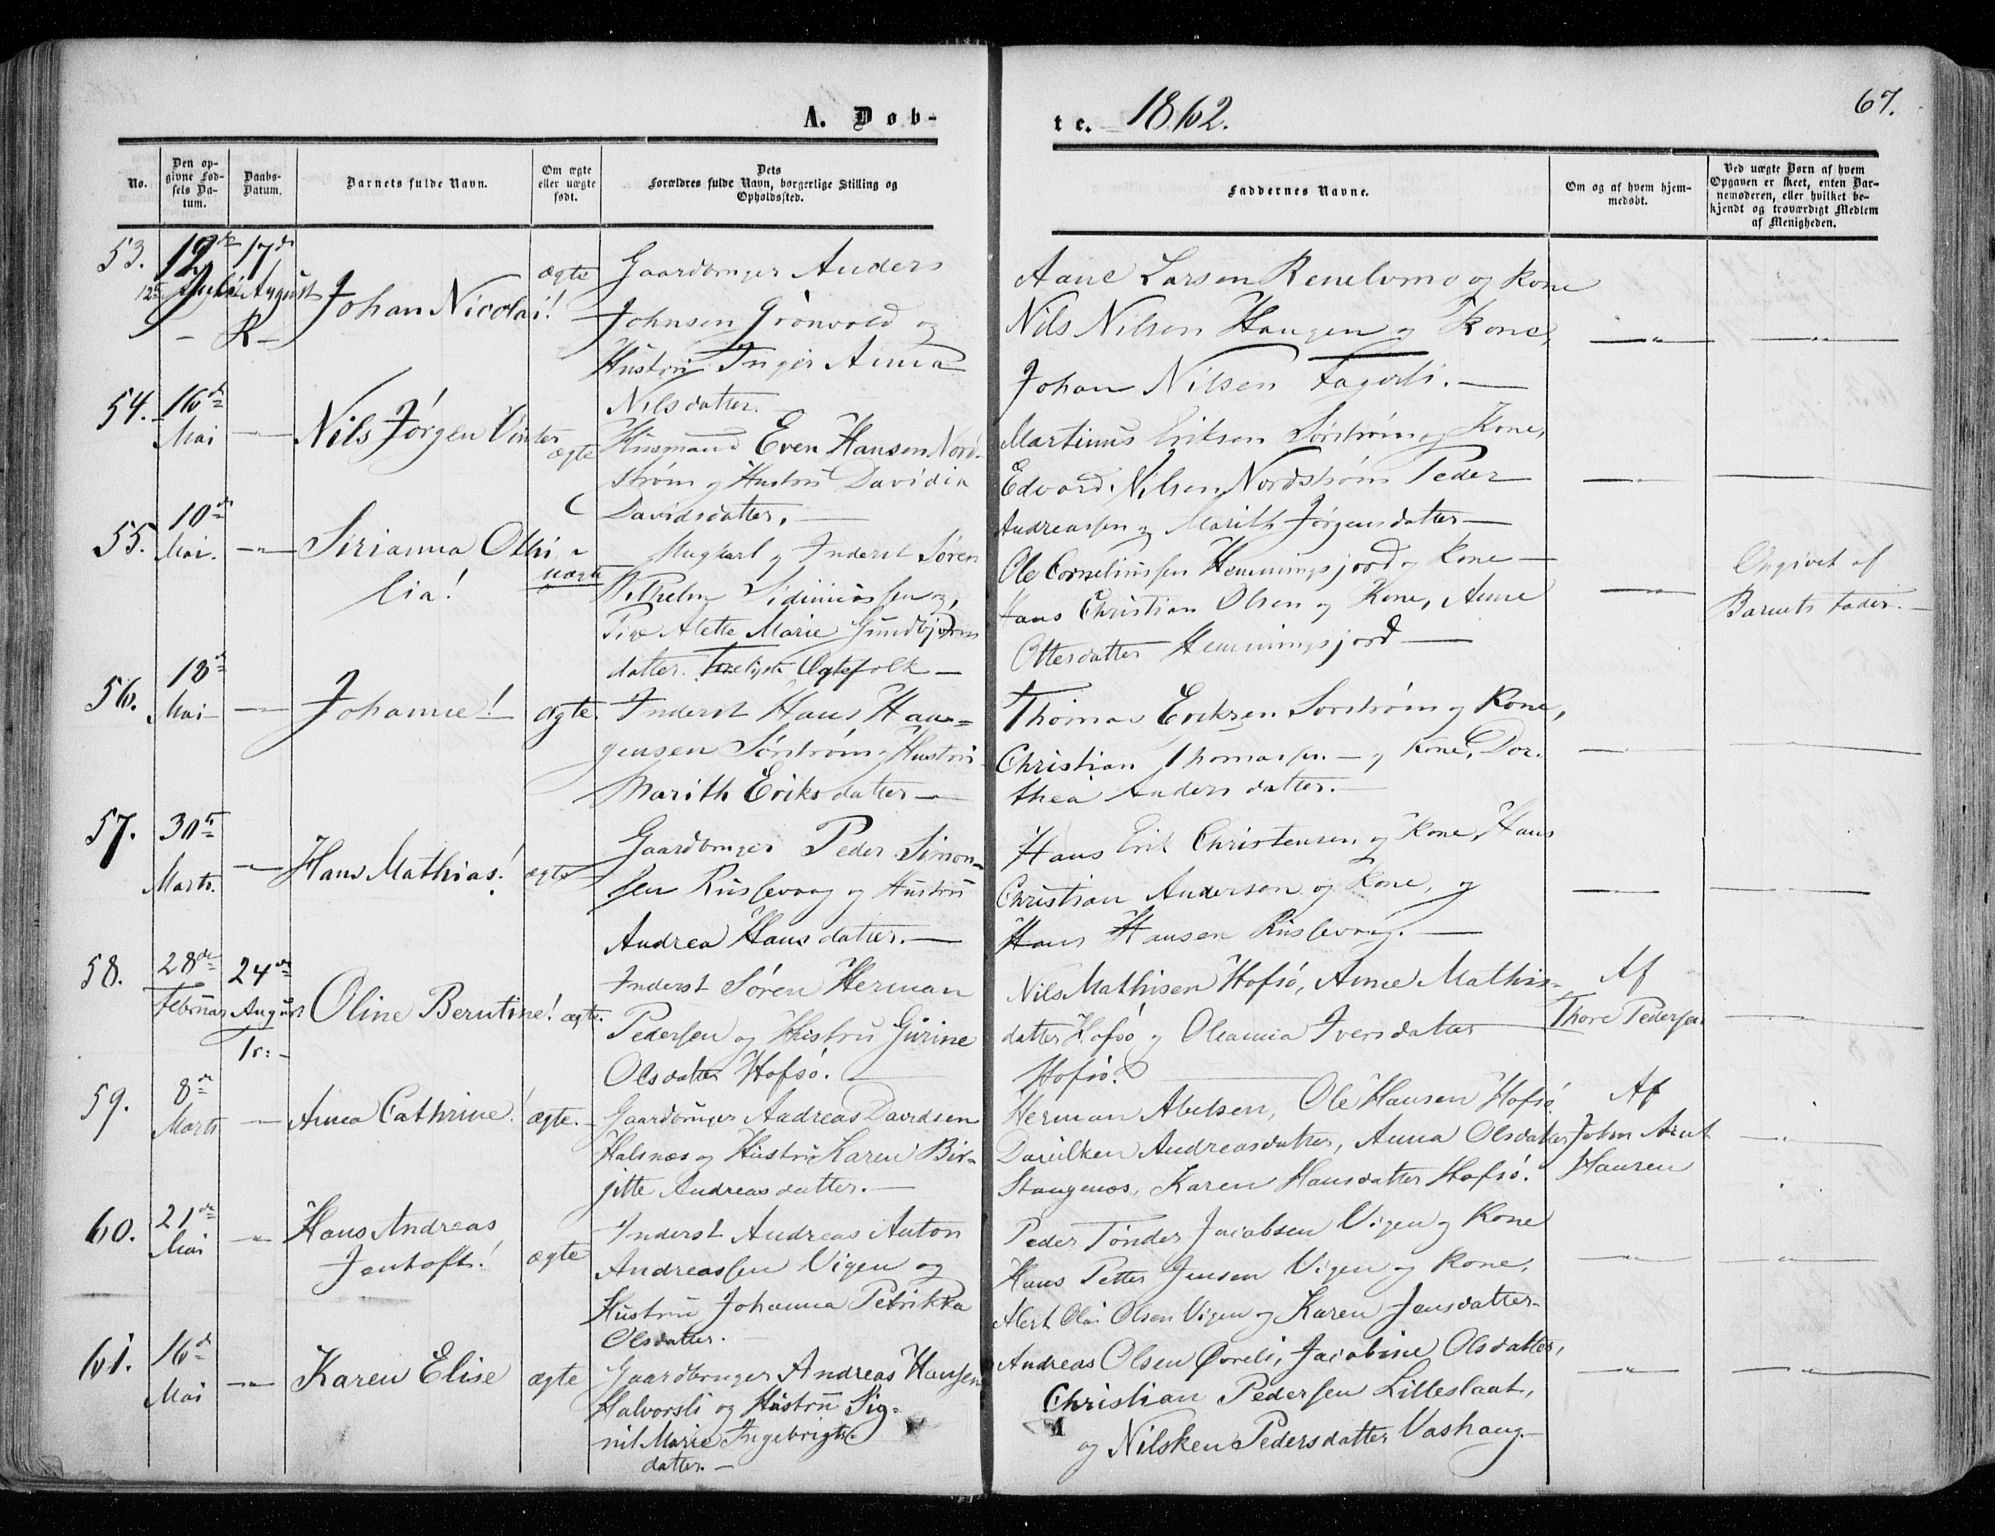 A. Døb-
te. 1862.
67.
No.
Den op-
givne Fød-
sels Da-
tum.
Daabs-
Datum.
Barnets fulde Navn.
Om ægte
eller uægte
født.
Dets
Forældres fulde Navn, borgerlige Stilling og
Opholdssted.
Faddernes Navne.
Om og af hvem hjem-
medøbt.
Ved uægte Børn af hvem
Opgaven er skeet, enten Bar-
nemoderen, eller hvilket be-
kjendt og troværdigt Medlem
af Menigheden.
53.
12te
Juli
17de
August
R-
Johan Nicolai!
ægte
Gaardbruger Anders
Johnsen Grønvold og
Hustru Inger Anna
Nilsdatter.
Aane Larsen Renelvmo og Kone
Nils Nilsen Haugen og Kone,
Johan Nilsen Fagerli. —
— " —
— " —
54.
16de
Mai
—
Nils Jørgen Vinter
ægte
Husmand Even Hansen Nord-
strøm og Hustru Davidia
Davidsdatter. —
Martinus Eriksen Sørstrøm og Kone,
Edvard Nilsen Nordstrøm Peder
Andreassen og Marith Jørgensdatter —
— " —
—
55.
10de
Mai.
— " —
Sirianna Othi-
lia!
uægte
Ungkarl og Inderst Søren
Vilhelm
Pige Alette Marie Gundbjørns
datter. Ægtefolk —
Ole Corneliussen Hemmingsjord og Kone —
Hans Christian Olsen og Kone, Anne
Ottersdatter Hemmingsjord —
— " —
Opgivet af
Barnets Fader. —
56.
18de
Mai
— " —
Johanne!
ægte.
Inderst Hans Haa-
gensen Sørstrøm og Hustru
Marith Eriksdatter —
Thomas Eriksen Sørstrøm og Kone,
Christian Thomassen — og Kone, Dor-
thea Andersdatter. —
— " —
— " —
57.
30te
Marts.
— " —
Hans Mathias!
ægte
Gaardbruger Peder Simon-
sen Russevaag og Hustru
Andrea Hansdatter. —
Hans Erik Christensen og Kone, Hans
Christian Andersen og Kone, og
Hans Hansen Russevaag. —
— " —
— " —
58.
28de
Februar
24de
August
Tr: -
Oline Berntine!
ægte.
Inderst Søren Herman
Pedersen og Hustru Gurine
Olsdatter Hofsø. —
Nils Mathisen Hofsø, Anne Mathis-
datter Hofsø og Oleanna Iversdatter
Hofsø.
Af
Thore Pedersen
— " —
59.
8de
Marts
— " —
Anna Cathrine!
ægte. -
Gaardbruger Andreas Davidsen
Halsnæs og Hustru Karen Bir-
gitte Andreasdatter. —
Herman Abelsen, Ole Hansen Hofsø
Andreasdatter, Anna Olsdatter
Stangenes, Karen Hansdatter Hofsø.
Af
John Arnt
Hansen
— " —
60.
21de
Mai
— " —
Hans Andreas
Jentoft!
ægte
Inderst Andreas Anton
Andreassen Vigen og
Hustru Johanna Petrikka
Olsdatter. —
Peder Tønder Jacobsen Vigen og Kone
Hans Petter Jensen Vigen og Kone,
Olai Olsen Vigen og Karen Jensdatter-
— " —
— " —
61.
16de
Mai
— " —
Karen Elise
ægte
Gaardbruger Andreas Hansen
Halvorsli og Hustru Sig-
nil Marie Ingebrigts
datter. —
Andreas Olsen Øvreli, Jacobine Olsdatter,
Christian Pedersen Lilleslaat,
og Nilsken Pedersdatter Vashaug —
— " —
— " —